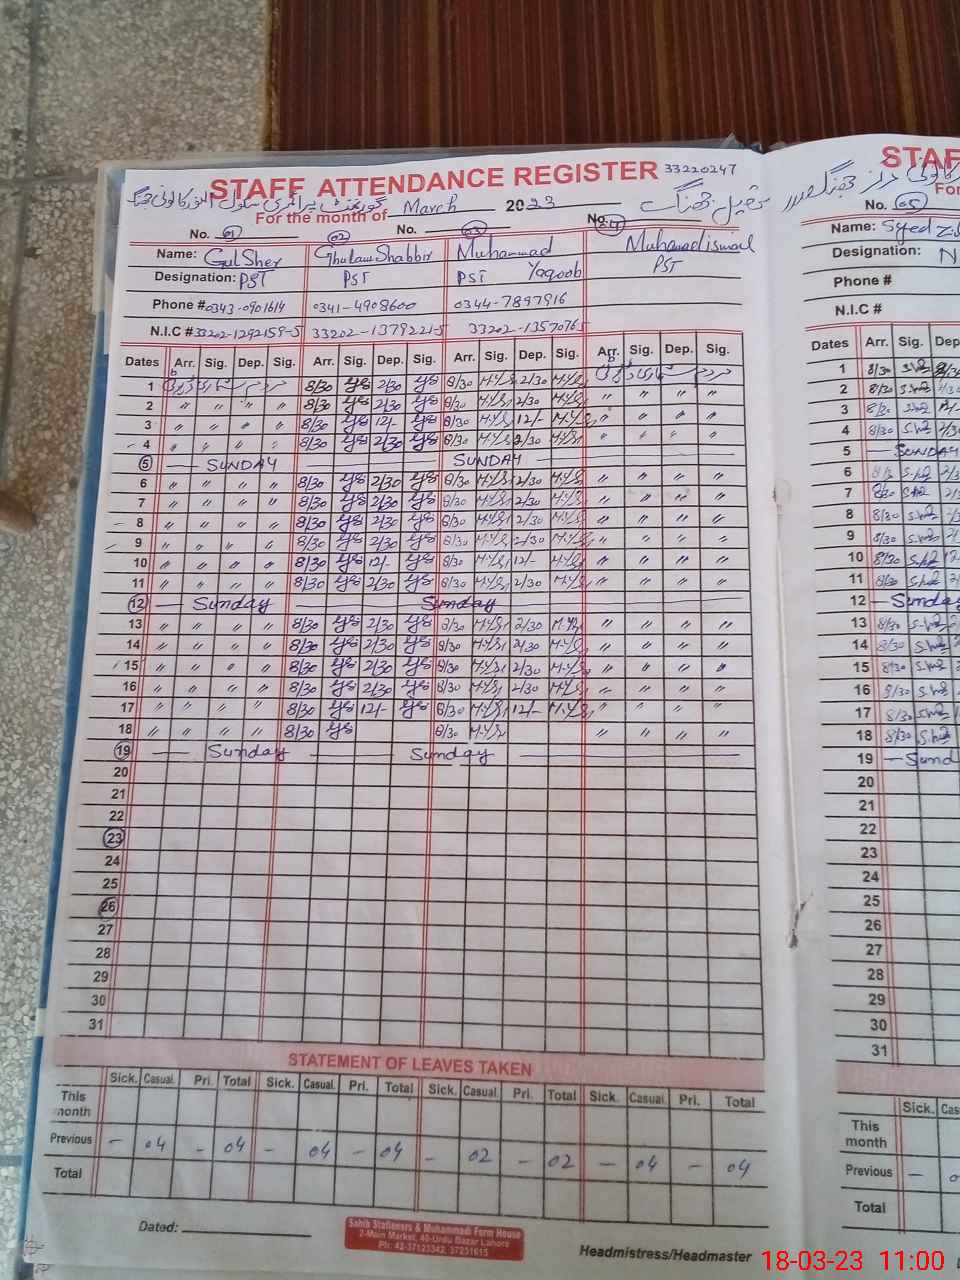 STAFF ATTENDANCE REGISTER 33220247
گورنمنٹ پرائمری سکول
For the month of March 2023 تحصیل جھنگ
No. 01 02 No. 03 No. 04
Name: Gul Sher Ghulam Shabbir Muhammad Muhamad ismail
Designation: PST PST PST Yaqoob PST
Phone # 0343-0901614 0341-4908600 0344-7897916
N.I.C # 33202-1292159-5 33202-1379221-5 33202-1357076
Dates Arr. Sig. Dep. Sig. Arr. Sig. Dep. Sig. Arr. Sig. Dep. Sig. Arr. Sig. Dep. Sig.
1 8/30 2/30 8/30 M.Y.S 2/30 M.Y.S
2 〃 〃 〃 〃 8/30 2/30 8/30 M.Y.S 2/30 M.Y.S 〃 〃 〃 〃
3 〃 〃 〃 〃 8/30 12/- 8/30 M.Y.S 12/- M.Y.S 〃 〃 〃 〃
4 〃 〃 〃 〃 8/30 2/30 8/30 M.Y.S 2/30 M.Y.S 〃 〃 〃 〃
5 — SUNDAY — SUNDAY —
6 〃 〃 〃 〃 8/30 2/30 8/30 M.Y.S 2/30 M.Y.S 〃 〃 〃 〃
7 〃 〃 〃 〃 8/30 2/30 8/30 M.Y.S 2/30 M.Y.S 〃 〃 〃 〃
8 〃 〃 〃 〃 8/30 2/30 8/30 M.Y.S 2/30 M.Y.S 〃 〃 〃 〃
9 〃 〃 〃 〃 8/30 2/30 8/30 M.Y.S 2/30 M.Y.S 〃 〃 〃 〃
10 〃 〃 〃 〃 8/30 12/- 8/30 M.Y.S 12/- M.Y.S 〃 〃 〃 〃
11 〃 〃 〃 〃 8/30 2/30 8/30 M.Y.S 2/30 M.Y.S 〃 〃 〃 〃
12 — Sunday — Sunday —
13 〃 〃 〃 〃 8/30 2/30 8/30 M.Y.S 2/30 M.Y.S 〃 〃 〃 〃
14 〃 〃 〃 〃 8/30 2/30 8/30 M.Y.S 2/30 M.Y.S 〃 〃 〃 〃
15 〃 〃 〃 〃 8/30 2/30 8/30 M.Y.S 2/30 M.Y.S 〃 〃 〃 〃
16 〃 〃 〃 〃 8/30 2/30 8/30 M.Y.S 2/30 M.Y.S 〃 〃 〃 〃
17 〃 〃 〃 〃 8/30 12/- 8/30 M.Y.S 12/- M.Y.S 〃 〃 〃 〃
18 〃 〃 〃 〃 8/30 8/30 M.Y.S 〃 〃 〃 〃
19 — Sunday — Sunday —
20
21
22
23
24
25
26
27
28
29
30
31
STATEMENT OF LEAVES TAKEN
Sick. Casual. Pri. Total Sick. Casual. Pri. Total Sick. Casual. Pri. Total Sick. Casual. Pri. Total
This month
Previous - 04 - 04 - 04 - 04 - 02 - 02 - 04 - 04
Total
Dated:
Sahib Stationers & Muhammadi Form House
2-Main Market, 40-Urdu Bazar Lahore
Ph: 42-37123342, 37231615
Headmistress/Headmaster
STAF
No. 05
Name: Syed
Designation:
Phone #
N.I.C #
Dates Arr. Sig. Dep
1 8/30
2 8/30
3 8/30
4 8/30
5 — SUNDAY
6 8/30
7 8/30
8 8/30
9 8/30
10 8/30
11 8/30
12 — Sunday
13 8/30
14 8/30
15 8/30
16 8/30
17 8/30
18 8/30
19 — Sund
20
21
22
23
24
25
26
27
28
29
30
31
Sick. Cas
This month
Previous -
Total
18-03-23 11:00